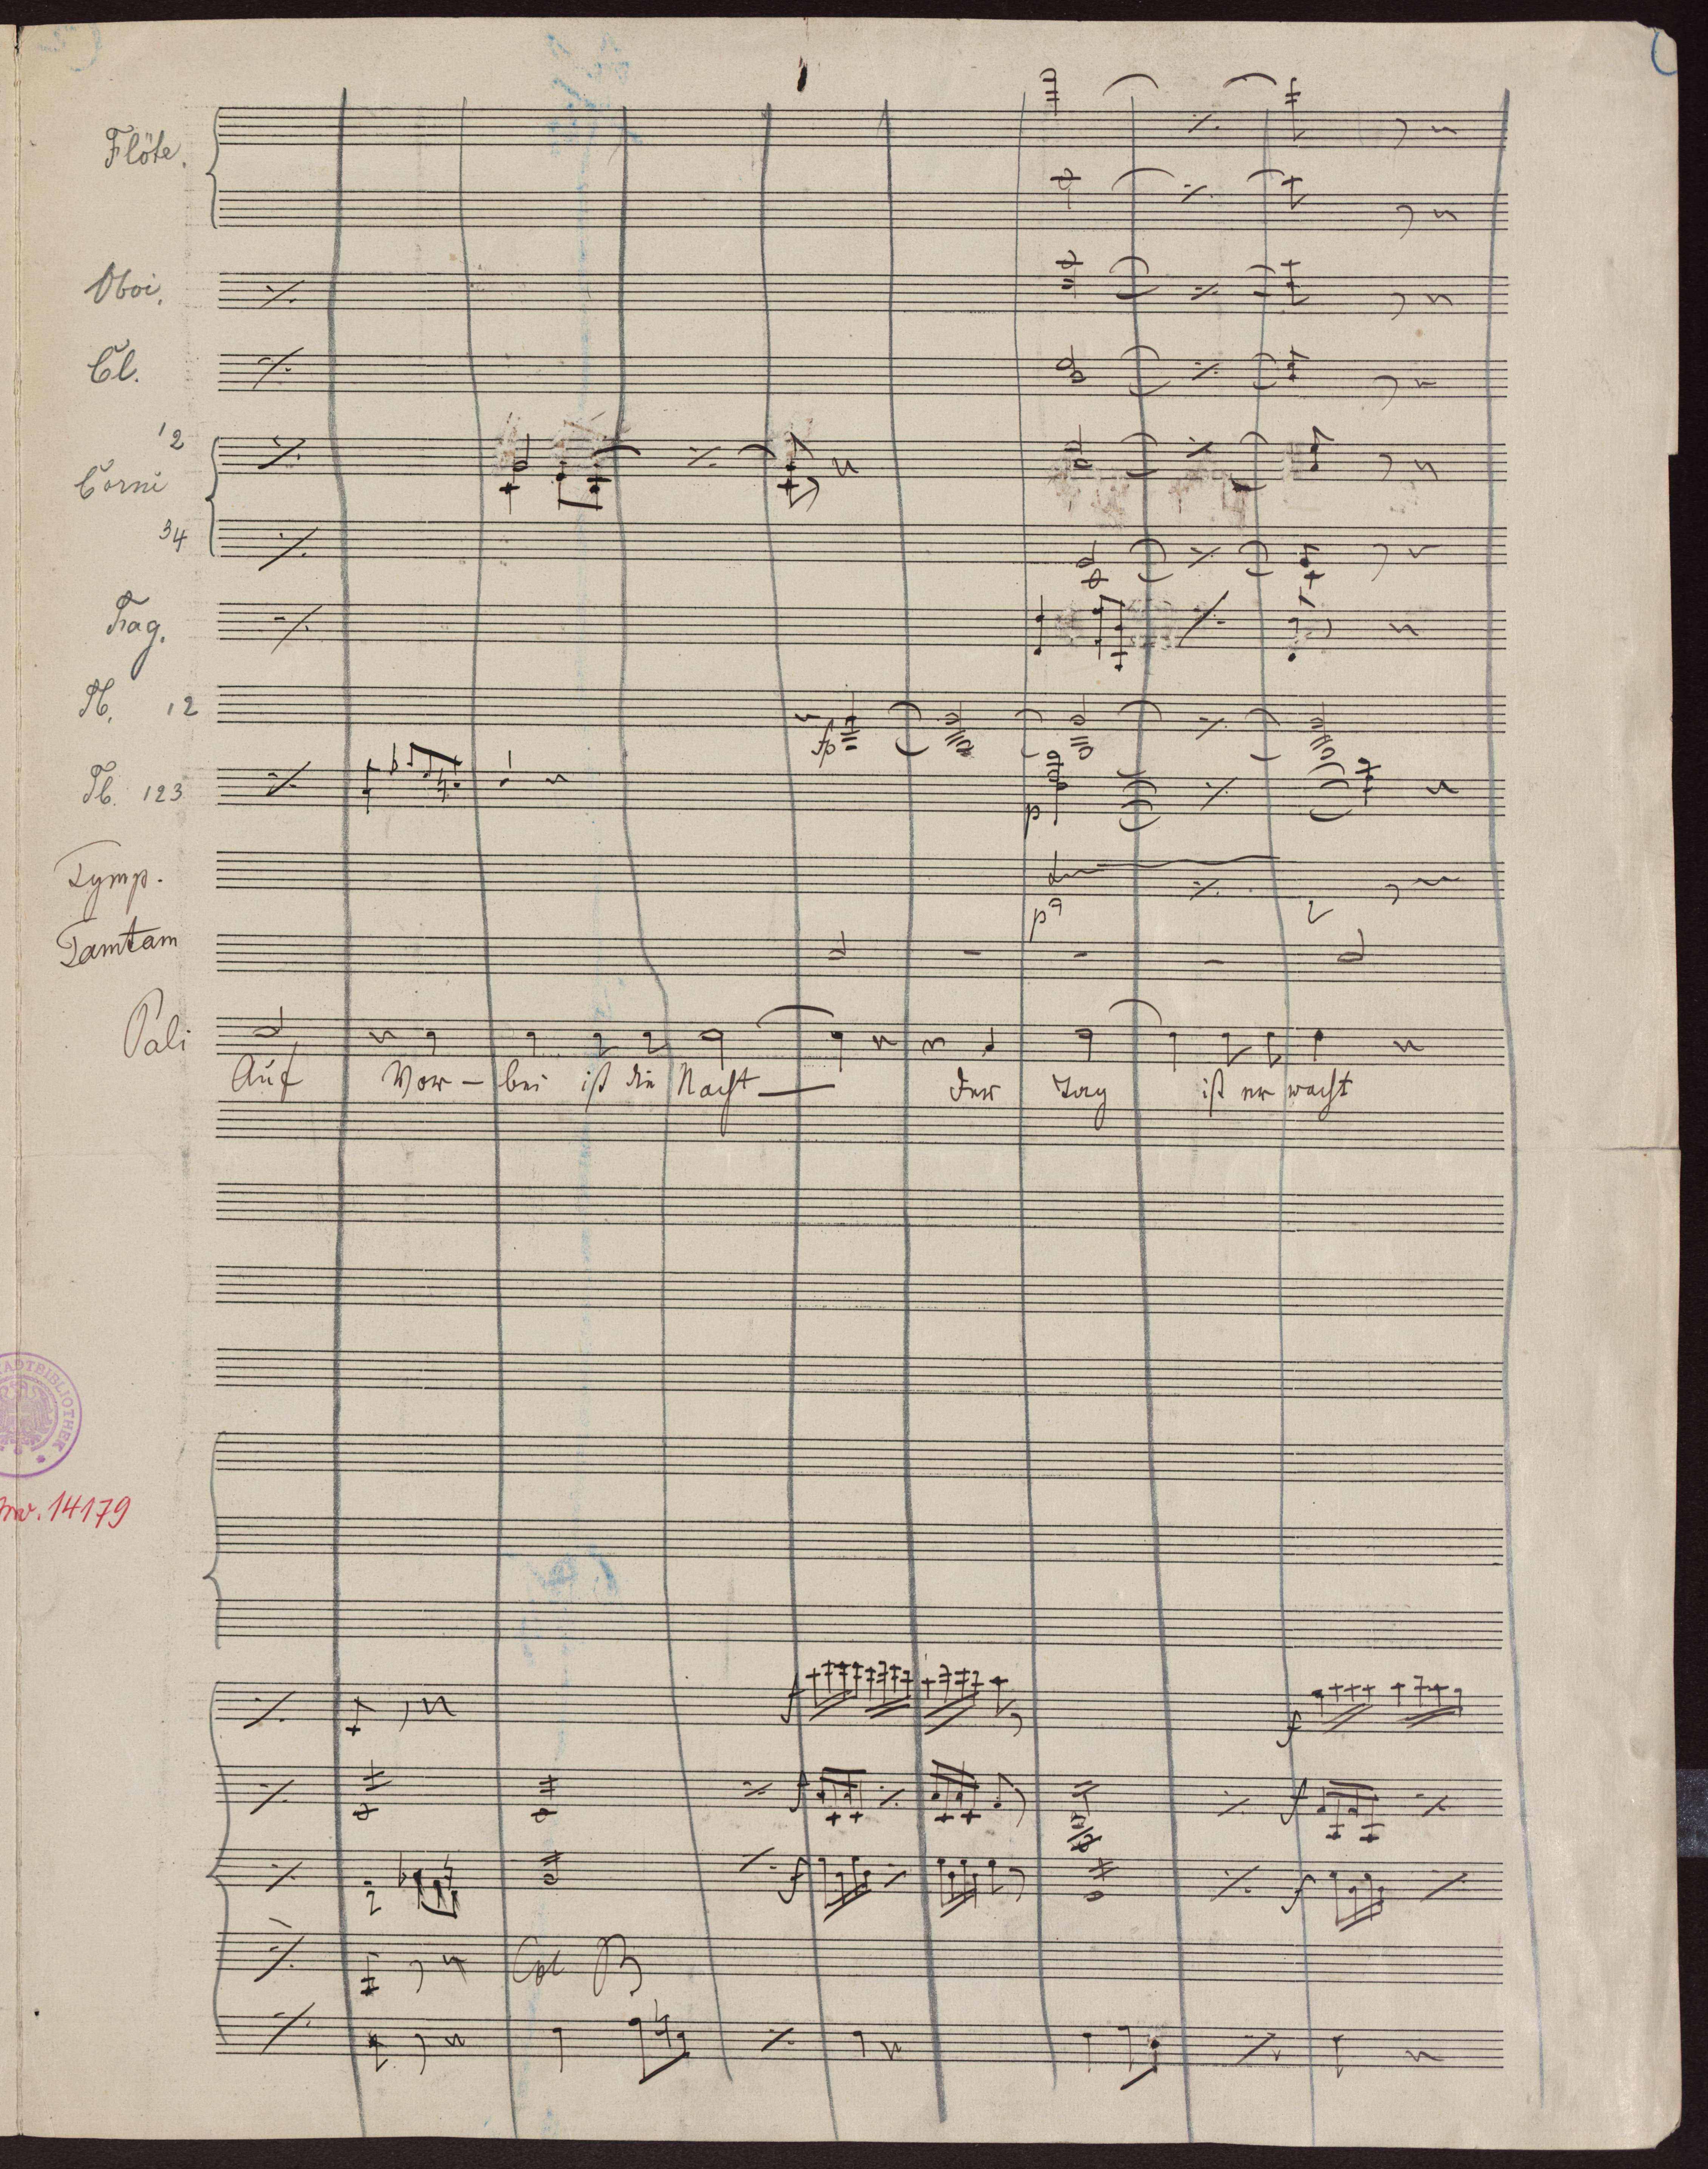 Flöte.
Oboi.
Cl.
12
Corni
34
Fag.
12
Tb. 123
fp
p
Tymp.
p
Tamtam
Pali
Auf Vor-bei ist die Nacht — Der Tag ist er wacht
STADTBIBLIOTHEK
Inv. 14179
f f
f f
f f
Col B